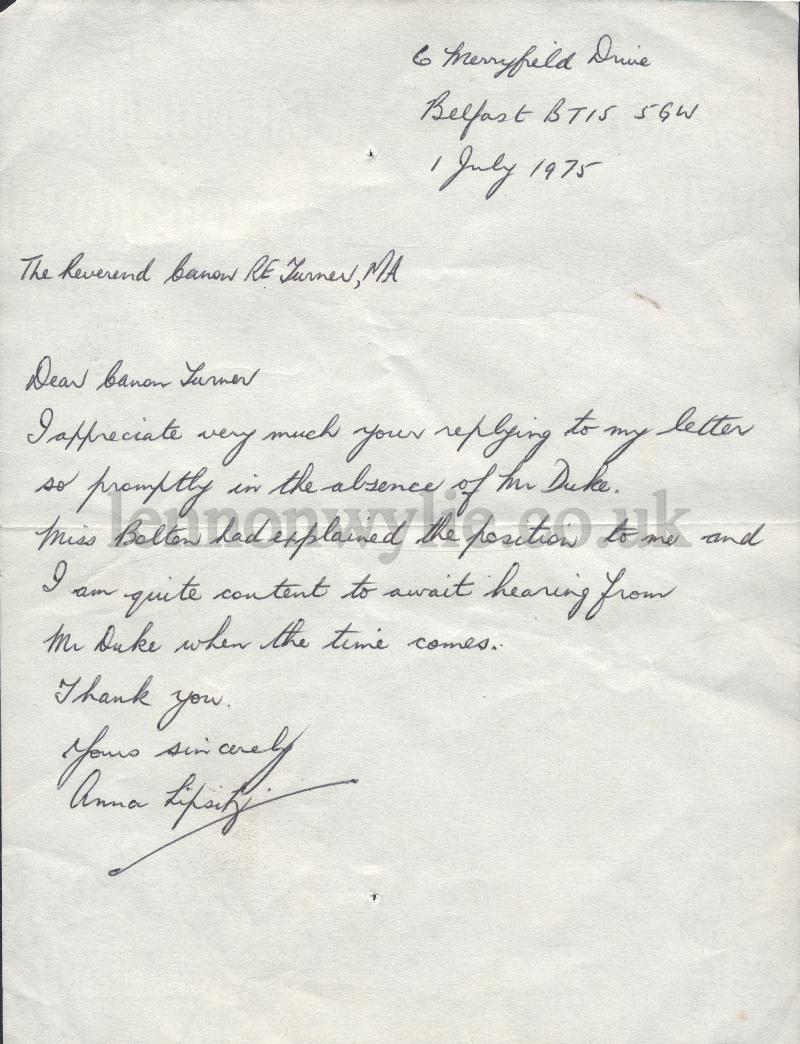 6 Merryfield Drive
Belfast BT15 5GW
1 July 1975
The Reverend Canon RE Turner, MA
Dear Canon Turner
I appreciate very much your replying to my letter
so promptly in the absence of Mr Duke.
lennonwylie.co.uk
Miss Bolton had explained the position to me and
I am quite content to await hearing from
Mr Duke when the time comes.
Thank you.
Yours sincerely
Anna Lipsitz